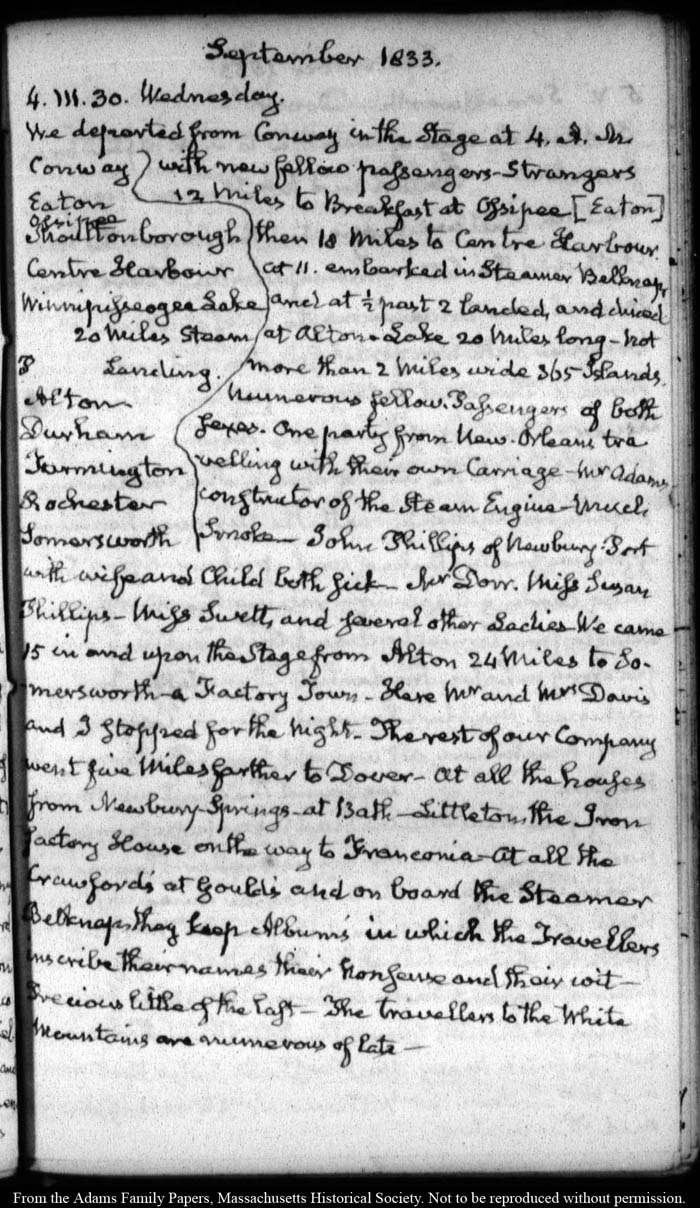 September 1833.
4. III. 30. Wednesday.
We departed from Conway in the Stage at 4. A. M.
Conway with new fellow passengers - Strangers
Eaton 12 Miles to Breakfast at Ossipee [Eaton]
Ossipee
Moultonborough then 18 Miles to Centre Harbour
Centre Harbour at 11. embarked in Steamer Belknap,
Winnipisseogee Lake and at ½ past 2 landed, and dined
20 Miles Steam at Alton - Lake 20 Miles long - not
Landing. more than 2 Miles wide 365 Islands.
Alton Numerous fellow-Passengers of both
Durham sexes. One party from New-Orleans tra
Farmington velling with their own Carriage - Mr Adams
Rochester constructor of the Steam Engine - Much
Somersworth Smoke - John Phillips of Newbury-Port
with wife and Child both sick - Mr Dorr. Miss Susan
Phillips - Miss Swett, and several other Ladies - We came
15 in and upon the Stage from Alton 24 Miles to So-
mersworth - a Factory Town - Here Mr and Mrs Davis
and I stopped for the Night - The rest of our Company
went five Miles farther to Dover - At all the houses
from Newbury Springs - at Bath - Littleton, the Iron
factory House on the way to Franconia - At all the
Crawford's at Gould's and on board the Steamer
Belknap, they keep Albums in which the Travellers
inscribe their names their Nonsense and their wit -
Precious little of the last - The travellers to the White
Mountains are numerous of late -
From the Adams Family Papers, Massachusetts Historical Society. Not to be reproduced without permission.